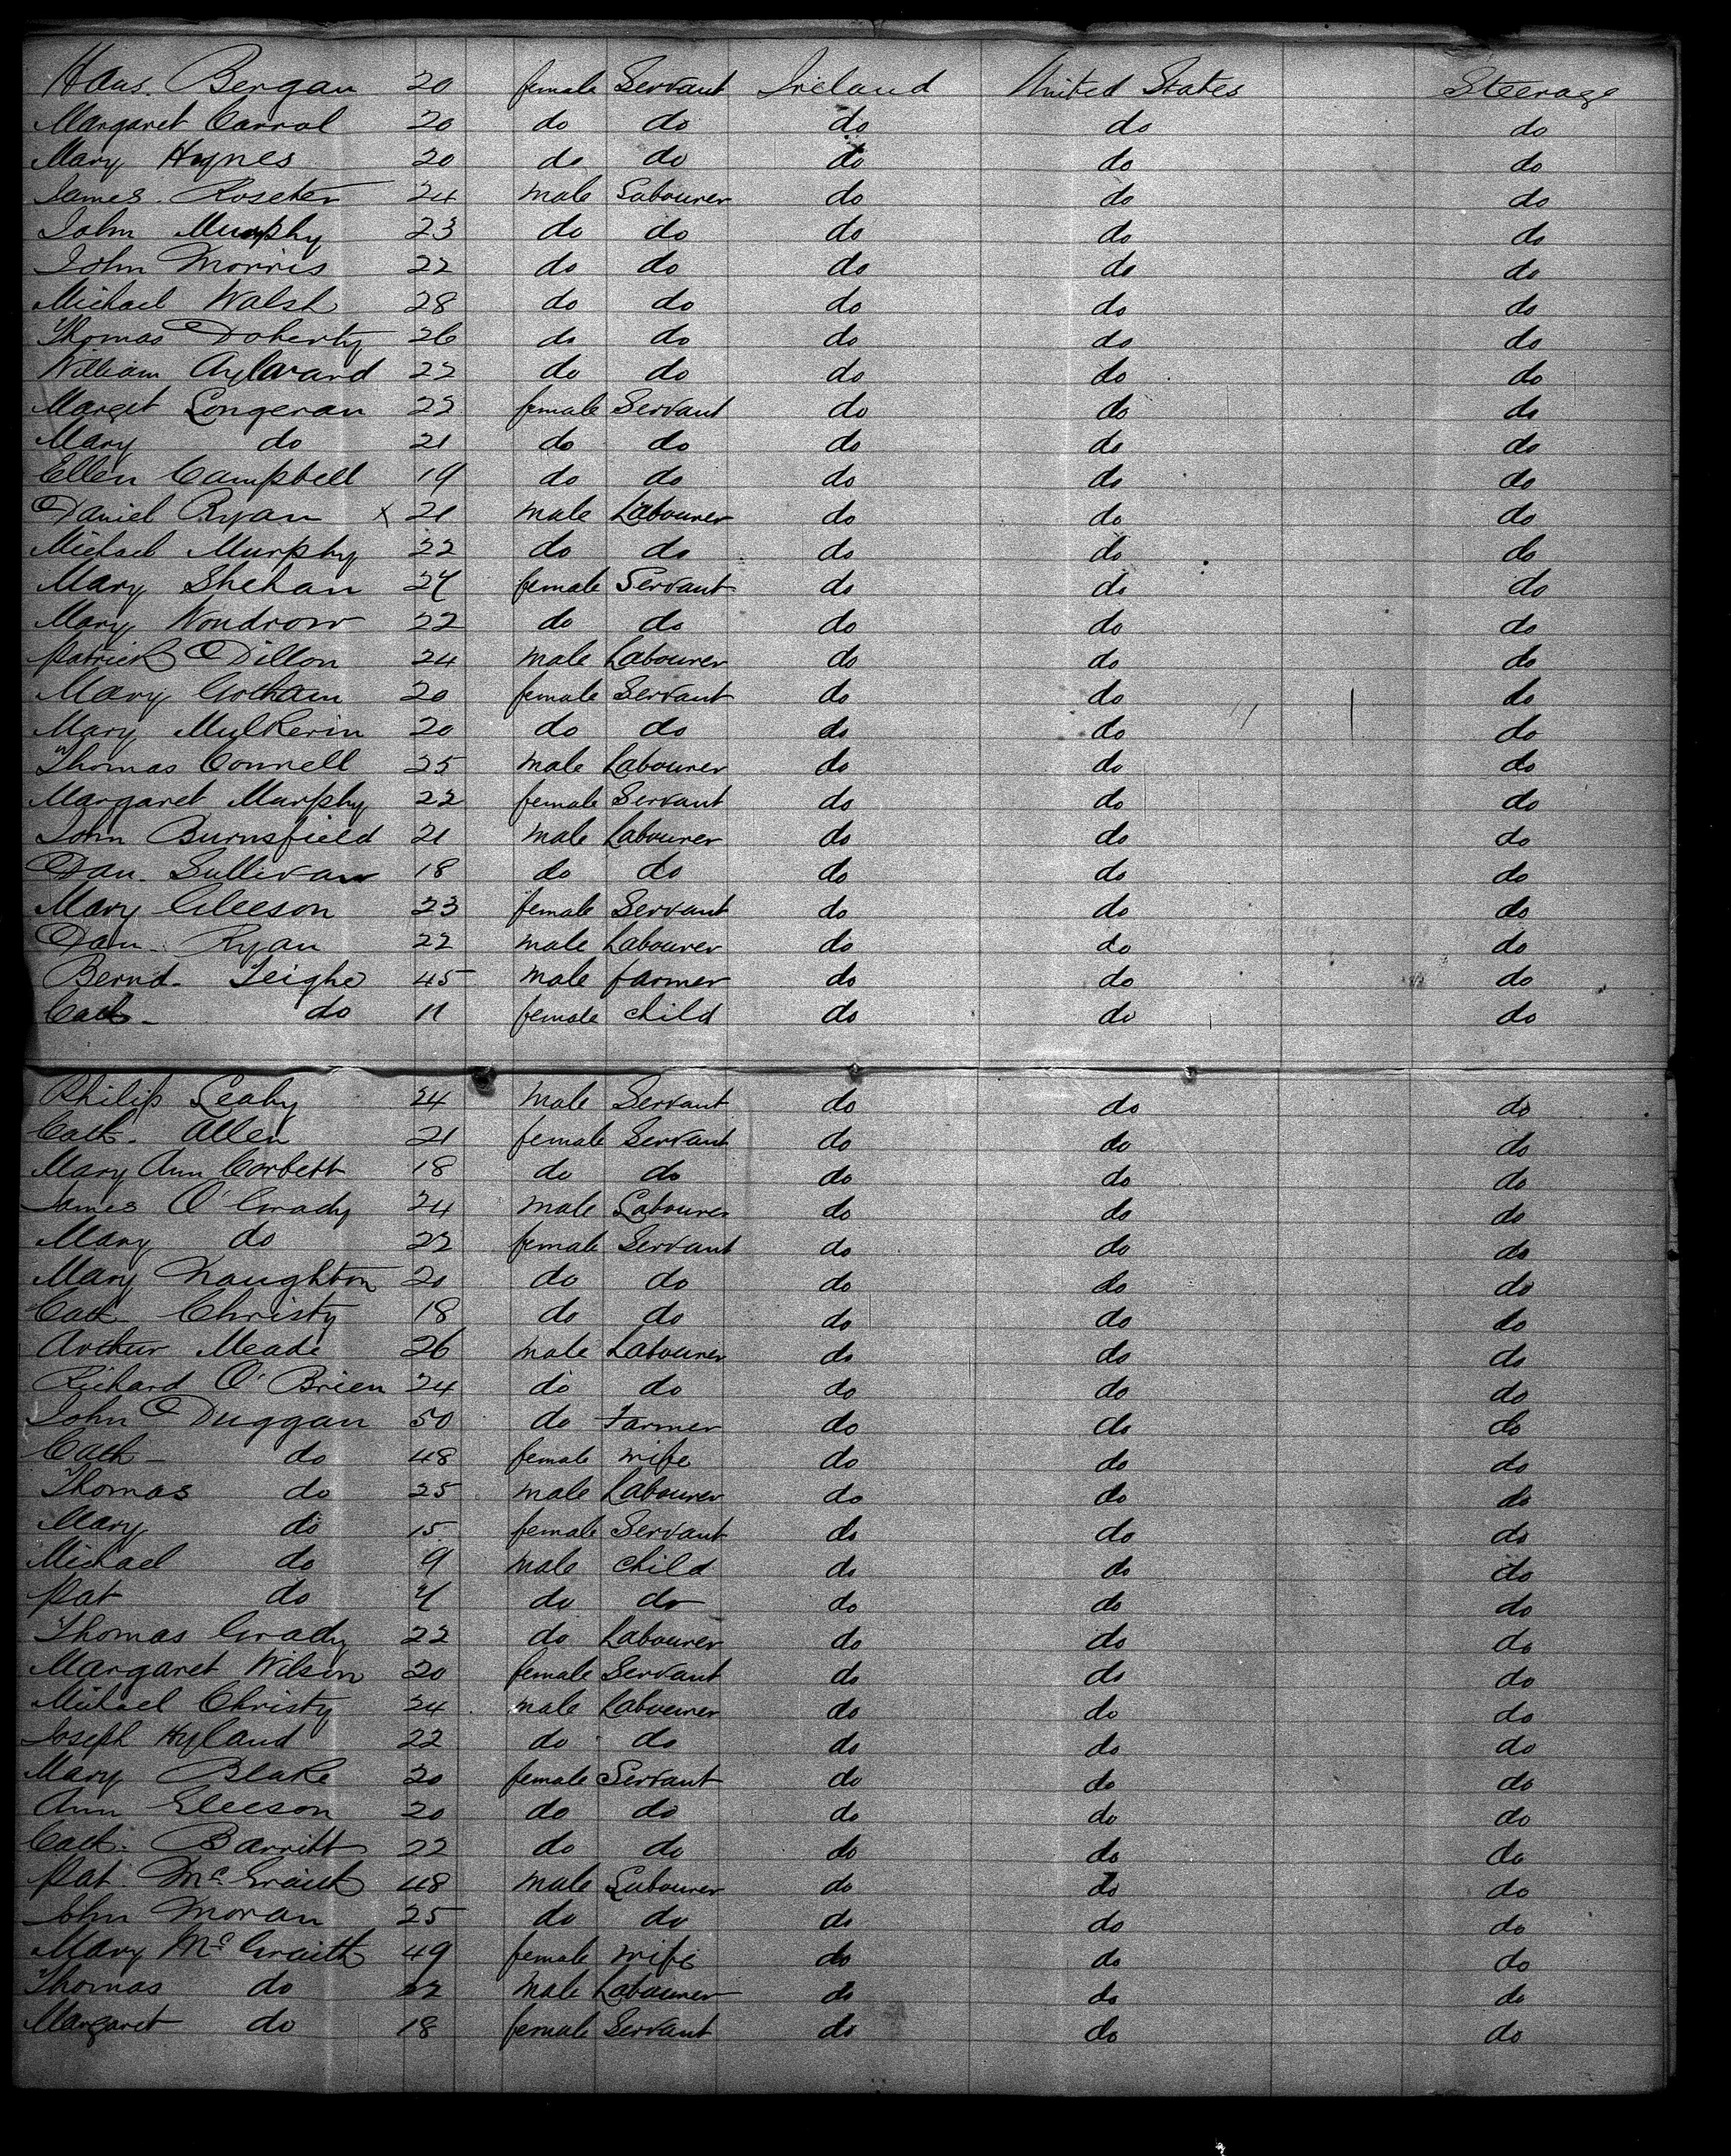 Hans. Bergan 20 female Servant Ireland United States Steerage
Margaret Carrol 20 do do do do do
Mary Hynes 20 do do do do do
James. Roseter 24 male Labourer do do do
John Murphy 23 do do do do do
John Morris 22 do do do do do
Michael Walsh 28 do do do do do
Thomas Doherty 26 do do do do do
William Aylward 22 do do do do do
Marget Longeran 22 female Servant do do do
Mary do 21 do do do do do
Ellen Campbell 19 do do do do do
Daniel Ryan x 21 male Labourer do do do
Michael Murphy 22 do do do do do
Mary Shehan 24 female Servant do do do
Mary Woudrow 22 do do do do do
Patrick Dillon 24 male Labourer do do do
Mary Gotham 20 female Servant do do do
Mary Mulkerin 20 do do do do do
Thomas Connell 25 male Labourer do do do
Margaret Murphy 22 female Servant do do do
John Burnsfield 21 male Labourer do do do
Dan. Sullivan 18 do do do do do
Mary Gleeson 23 female Servant do do do
Dan. Ryan 22 male Labourer do do do
Bernd. Teighe 45 male farmer do do do
Cath. do 11 female child do do do
Philip Leahy 24 male Servant do do do
Cath. Allen 21 female Servant do do do
Mary Ann Corbett 18 do do do do do
James O'Grady 24 male Labourer do do do
Mary do 22 female Servant do do do
Mary Naughton 20 do do do do do
Cath Christy 18 do do do do do
Arthur Meade 26 male Labourer do do do
Richard O'Brien 24 do do do do do
John Duggan 50 do Farmer do do do
Cath - do 48 female wife do do do
Thomas do 25 male Labourer do do do
Mary do 15 female Servant do do do
Michael do 9 male child do do do
Pat do 4 do do do do do
Thomas Grady 22 do Labourer do do do
Margaret Wilson 20 female Servant do do do
Michael Christy 24 male Labourer do do do
Joseph Hyland 22 do do do do do
Mary Blake 20 female Servant do do do
Ann Gleeson 20 do do do do do
Cath. Barritt 22 do do do do do
Pat. McGraith 48 male Labourer do do do
John Moran 25 do do do do do
Mary McGraith 49 female wife do do do
Thomas do 22 male Labourer do do do
Margaret do 18 female Servant do do do